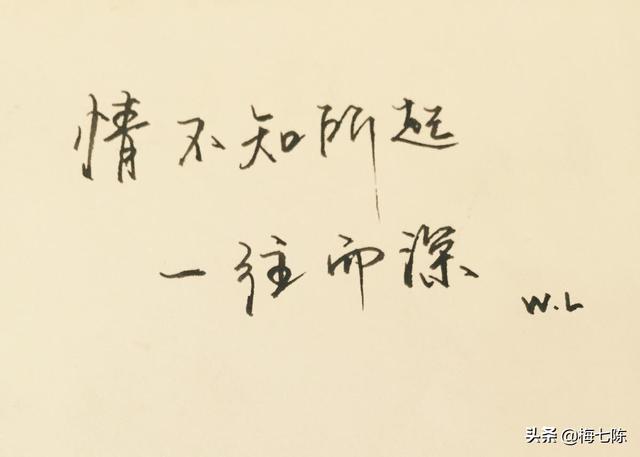 情不知所起
一往而深
W.L
头条 @梅七陈